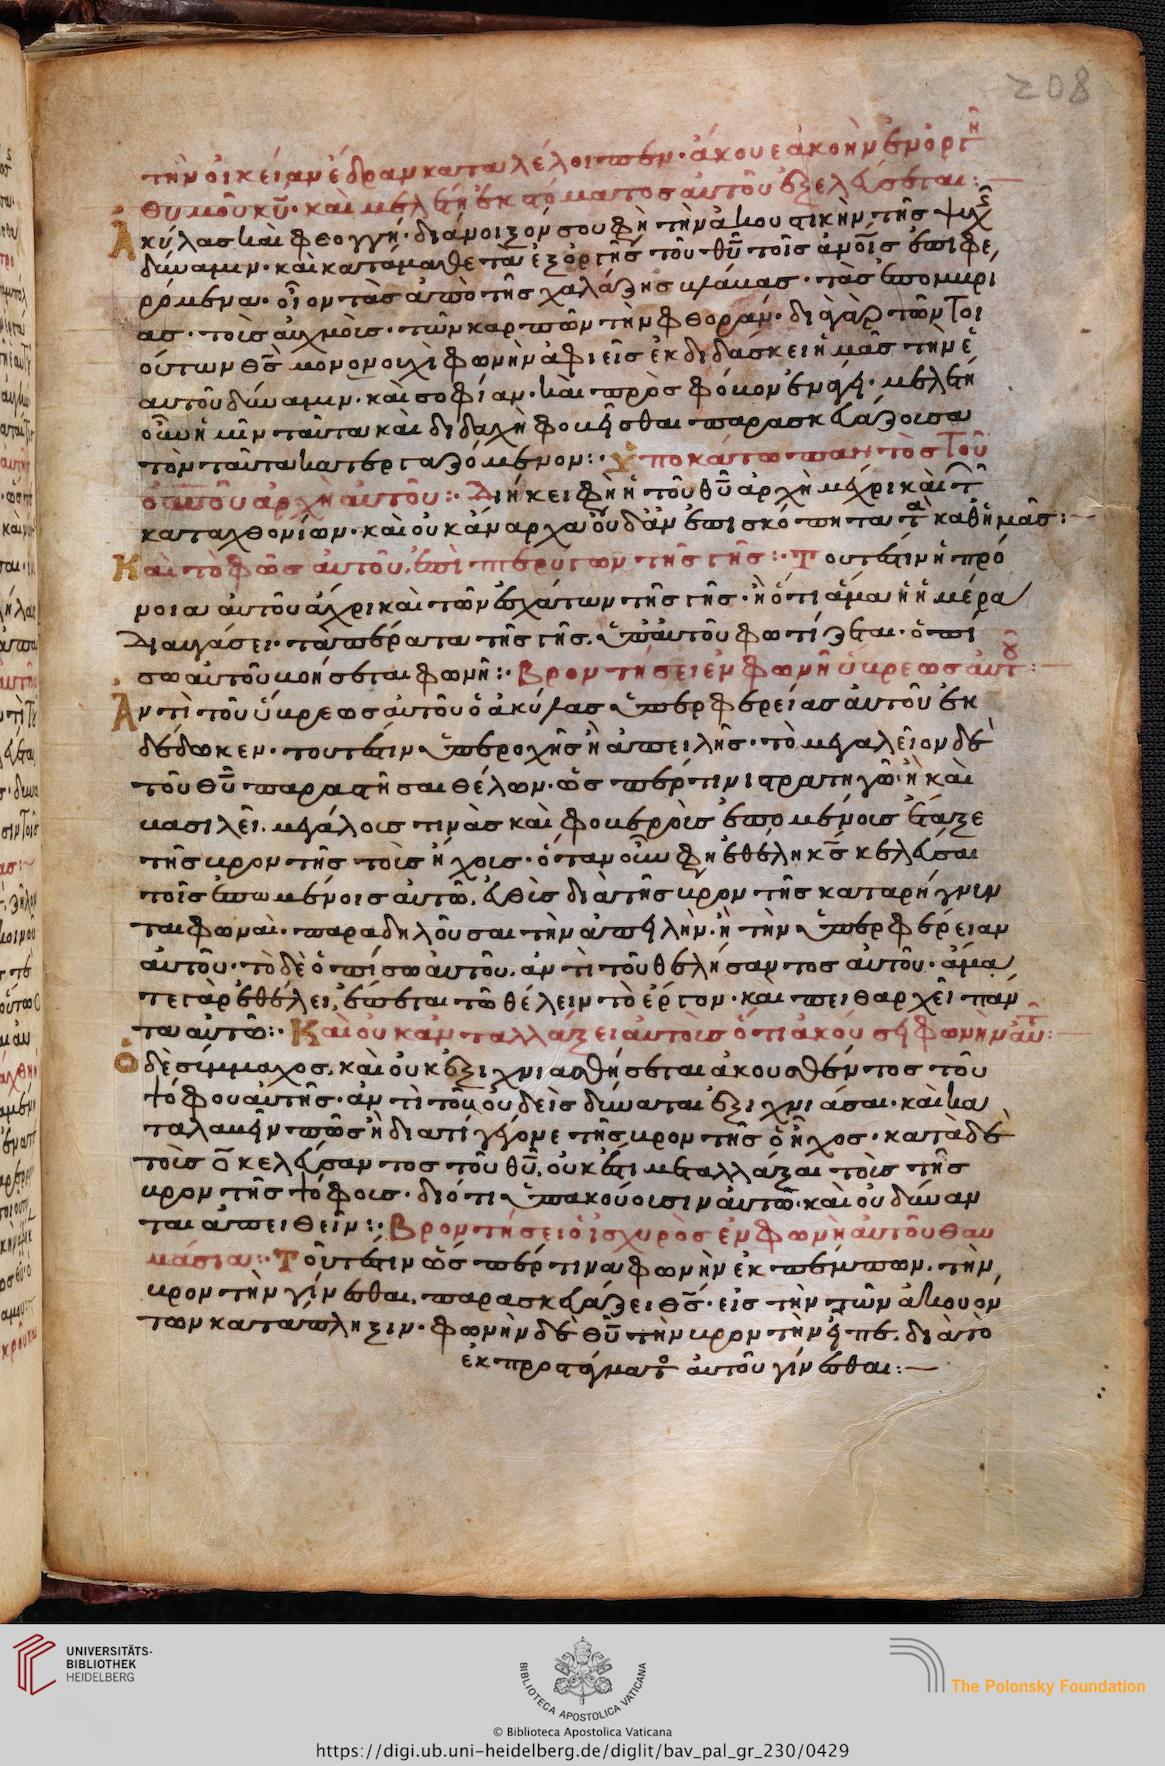 208
τὴν οἰκείαν ἕδραν καταλέλοιπεν· ἄκουε ἀκοὴν ἐν ὀργῆ
θυμοῦ κυ̅· καὶ μελέτη ἐκ στόματος αὐτοῦ ἐξελεύσεται:
Ἀκύλας καὶ φθογγή· διάνοιξόν σου φὴ τὴν ἀκουστικὴν τῆς ψυχῆς
δύναμιν· καὶ κατάμαθε τὰ ἐξ ὀργῆς τοῦ θυ̅ τοῖς ἀνοις ἐπιφε
ρόμενα· οἷον τὰς ἀπὸ τῆς χαλάζης βλάβας· τὰς ἐπομβρί
ας· τοῖς αὐχμοῖς· τῶν καρπῶν τὴν φθοράν· διὰ γὰρ τῶν τοι
ούτων θς̅ μονονουχὶ φωνὴν ἀφιεῖς ἐκδιδάσκει ἡμᾶς τὴν ἑ
αυτοῦ δύναμιν· καὶ σοφίαν· καὶ πρὸς φόβον ἐνάγει· μελέτη
οὖν ἡμῖν ταῦτα καὶ διδαχὴ φοβεῖσθαι παρασκευάζουσα
τὸν ταῦτα κατεργαζόμενον: Ὑποκάτω παντὸς τοῦ
οὐνοῦ ἀρχὴ αὐτοῦ: Διήκει φὴ ἡ τοῦ θυ̅ ἀρχὴ μέχρι καὶ τ
καταχθονίων· καὶ οὐκ ἄναρχα οὐδ' ἀνεπισκόπητα τὰ καθ' ἡμᾶς:
Καὶ τὸ φῶς αὐτοῦ ἐπὶ πτερύγων τῆς γῆς: Τουτέστιν ἡ πρό
νοια αὐτοῦ ἄχρι καὶ τῶν ἐσχάτων τῆς γῆς· ἢ ὅτι ἅμα ἡ ἡμέρα
διαυγάσει· τὰ πέρατα τῆς γῆς ὑπ' αὐτοῦ φωτίζεται· ὀπί
σω αὐτοῦ βοήσεται φωνή: Βροντήσει ἐν φωνῆ ὕβρεως αὐτοῦ:
Ἀντὶ τοῦ ὕβρεως αὐτοῦ ὁ ἀκύλας ὑπερφερείας αὐτοῦ ἐκ
δέδωκεν· τουτέστιν ὑπεροχῆς ἢ ἀπειλῆς· τὸ μεγαλεῖον δὲ
τοῦ θυ̅ παραστῆσαι θέλων· ὥσπερ τινὶ στρατηγῶ· ἢ καὶ
βασιλεῖ· μεγάλοις τινὰς καὶ φοβεροῖς ἑπομένοις ἔταξε
τῆς βροντῆς τοῖς ἤχοις· ὅταν οὖν φὴ ἐθέλη κς̅ κελεῦσαι
τοῖς ἑπομένοις αὐτῶ, εὐθὺς διὰ τῆς βροντῆς καταρήγνυν
ται φωναὶ· παραδηλοῦσαι τὴν ἀπειλὴν· ἢ τὴν ὑπερφέρειαν
αὐτοῦ· τὸ δὲ ὀπίσω αὐτοῦ· ἀντὶ τοῦ θελήσαντος αὐτοῦ· ἅμα
τε γὰρ ἐθέλει, ἕπεται τῶ θέλειν τὸ ἔργον· καὶ πειθαρχεῖ πάν
τα αὐτῶ: Καὶ οὐκ ἀνταλλάξει αὐτοὺς ὅτι ἀκούσει φωνὴν αὐτοῦ:
Ὁ δὲ σύμμαχος· καὶ οὐκ ἐξιχνιασθήσεται ἀκουσθέντος τοῦ
ψόφου αὐτῆς· ἀντὶ τοῦ οὐδεὶς δύναται ἐξιχνιάσαι· καὶ κα
ταλαβεῖν πῶς ἢ διατί γέγονε τῆς βροντῆς ὁ ἦχος· κατὰ δὲ
τοὺς ο̅ κελεύσαντος τοῦ θυ̅, οὐκ ἔστι μεταλλάξαι τοὺς τῆς
βροντῆς ψόφους· διότι ὑπακούουσιν αὐτῶ· καὶ οὐ δύναν
ται ἀπειθεῖν: Βροντήσει ὁ ἰσχυρὸς ἐν φωνῆ αὐτοῦ θαυ
μάσια: Τουτέστιν ὥσπερ τινα φωνὴν ἐκπέμπων· τὴν
βροντὴν γίνεσθαι, παρασκευάζει θς̅· εἰς τὴν τῶν ἀκουόν
των κατάπληξιν· φωνὴν δὲ θυ̅ τὴν βροντὴν εἶπε· διὰ τὸ
ἐκ προστάγματος αὐτοῦ γίνεσθαι:
UNIVERSITÄTS-
BIBLIOTHEK
HEIDELBERG
BIBLIOTECA APOSTOLICA VATICANA
© Biblioteca Apostolica Vaticana
https://digi.ub.uni-heidelberg.de/diglit/bav_pal_gr_230/0429
The Polonsky Foundation